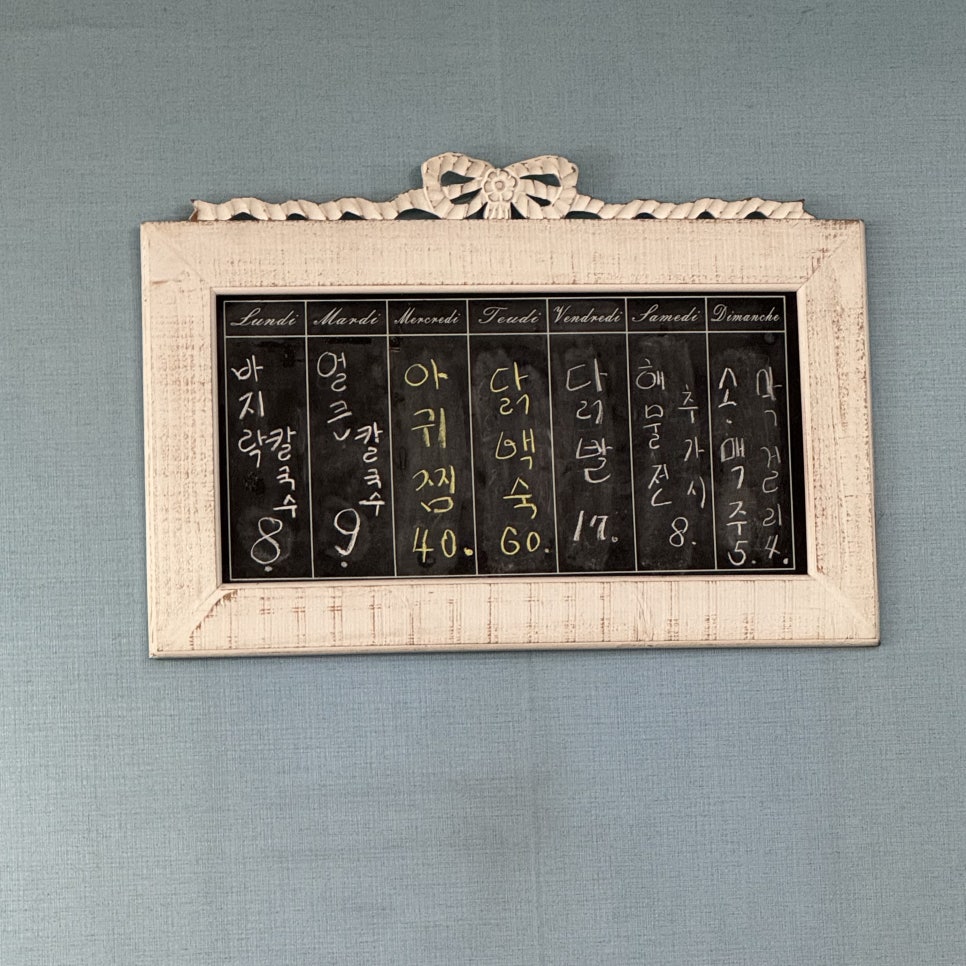 Lundi Mardi Mercredi Jeudi Vendredi Samedi Dimanche
바지락 칼국수 8.
얼큰 칼국수 9.
아귀찜 40.
닭백숙 60.
닭발 17.
해물전 8.
추가시
소.맥주 5.
막걸리 4.